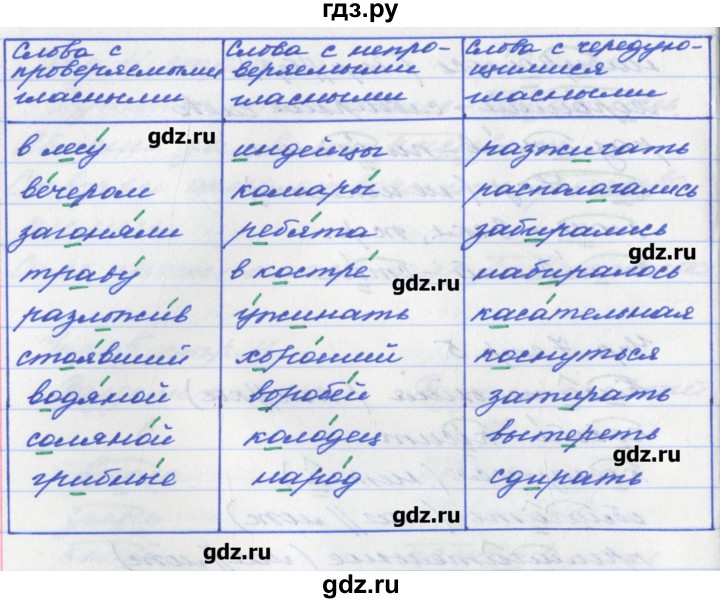 гдз.ру
Слова с проверяемыми гласными
Слова с непро-
веряемыми
гласными
Слова с чередую-
щимися
гласными
в лесу́ индейцы разжигать
gdz.ru
ве́чером комары́ располагались
загоня́ли ребя́та забирались
gdz.ru
траву́ в костре́ набиралось
gdz.ru
разложи́в у́жинать каса́тельная
стоя́вший хоро́ший коснуться
водяно́й воробе́й затирать
соляно́й коло́дец вытереть
gdz.ru
грибны́е наро́д сдирать
gdz.ru
gdz.ru
gdz.ru